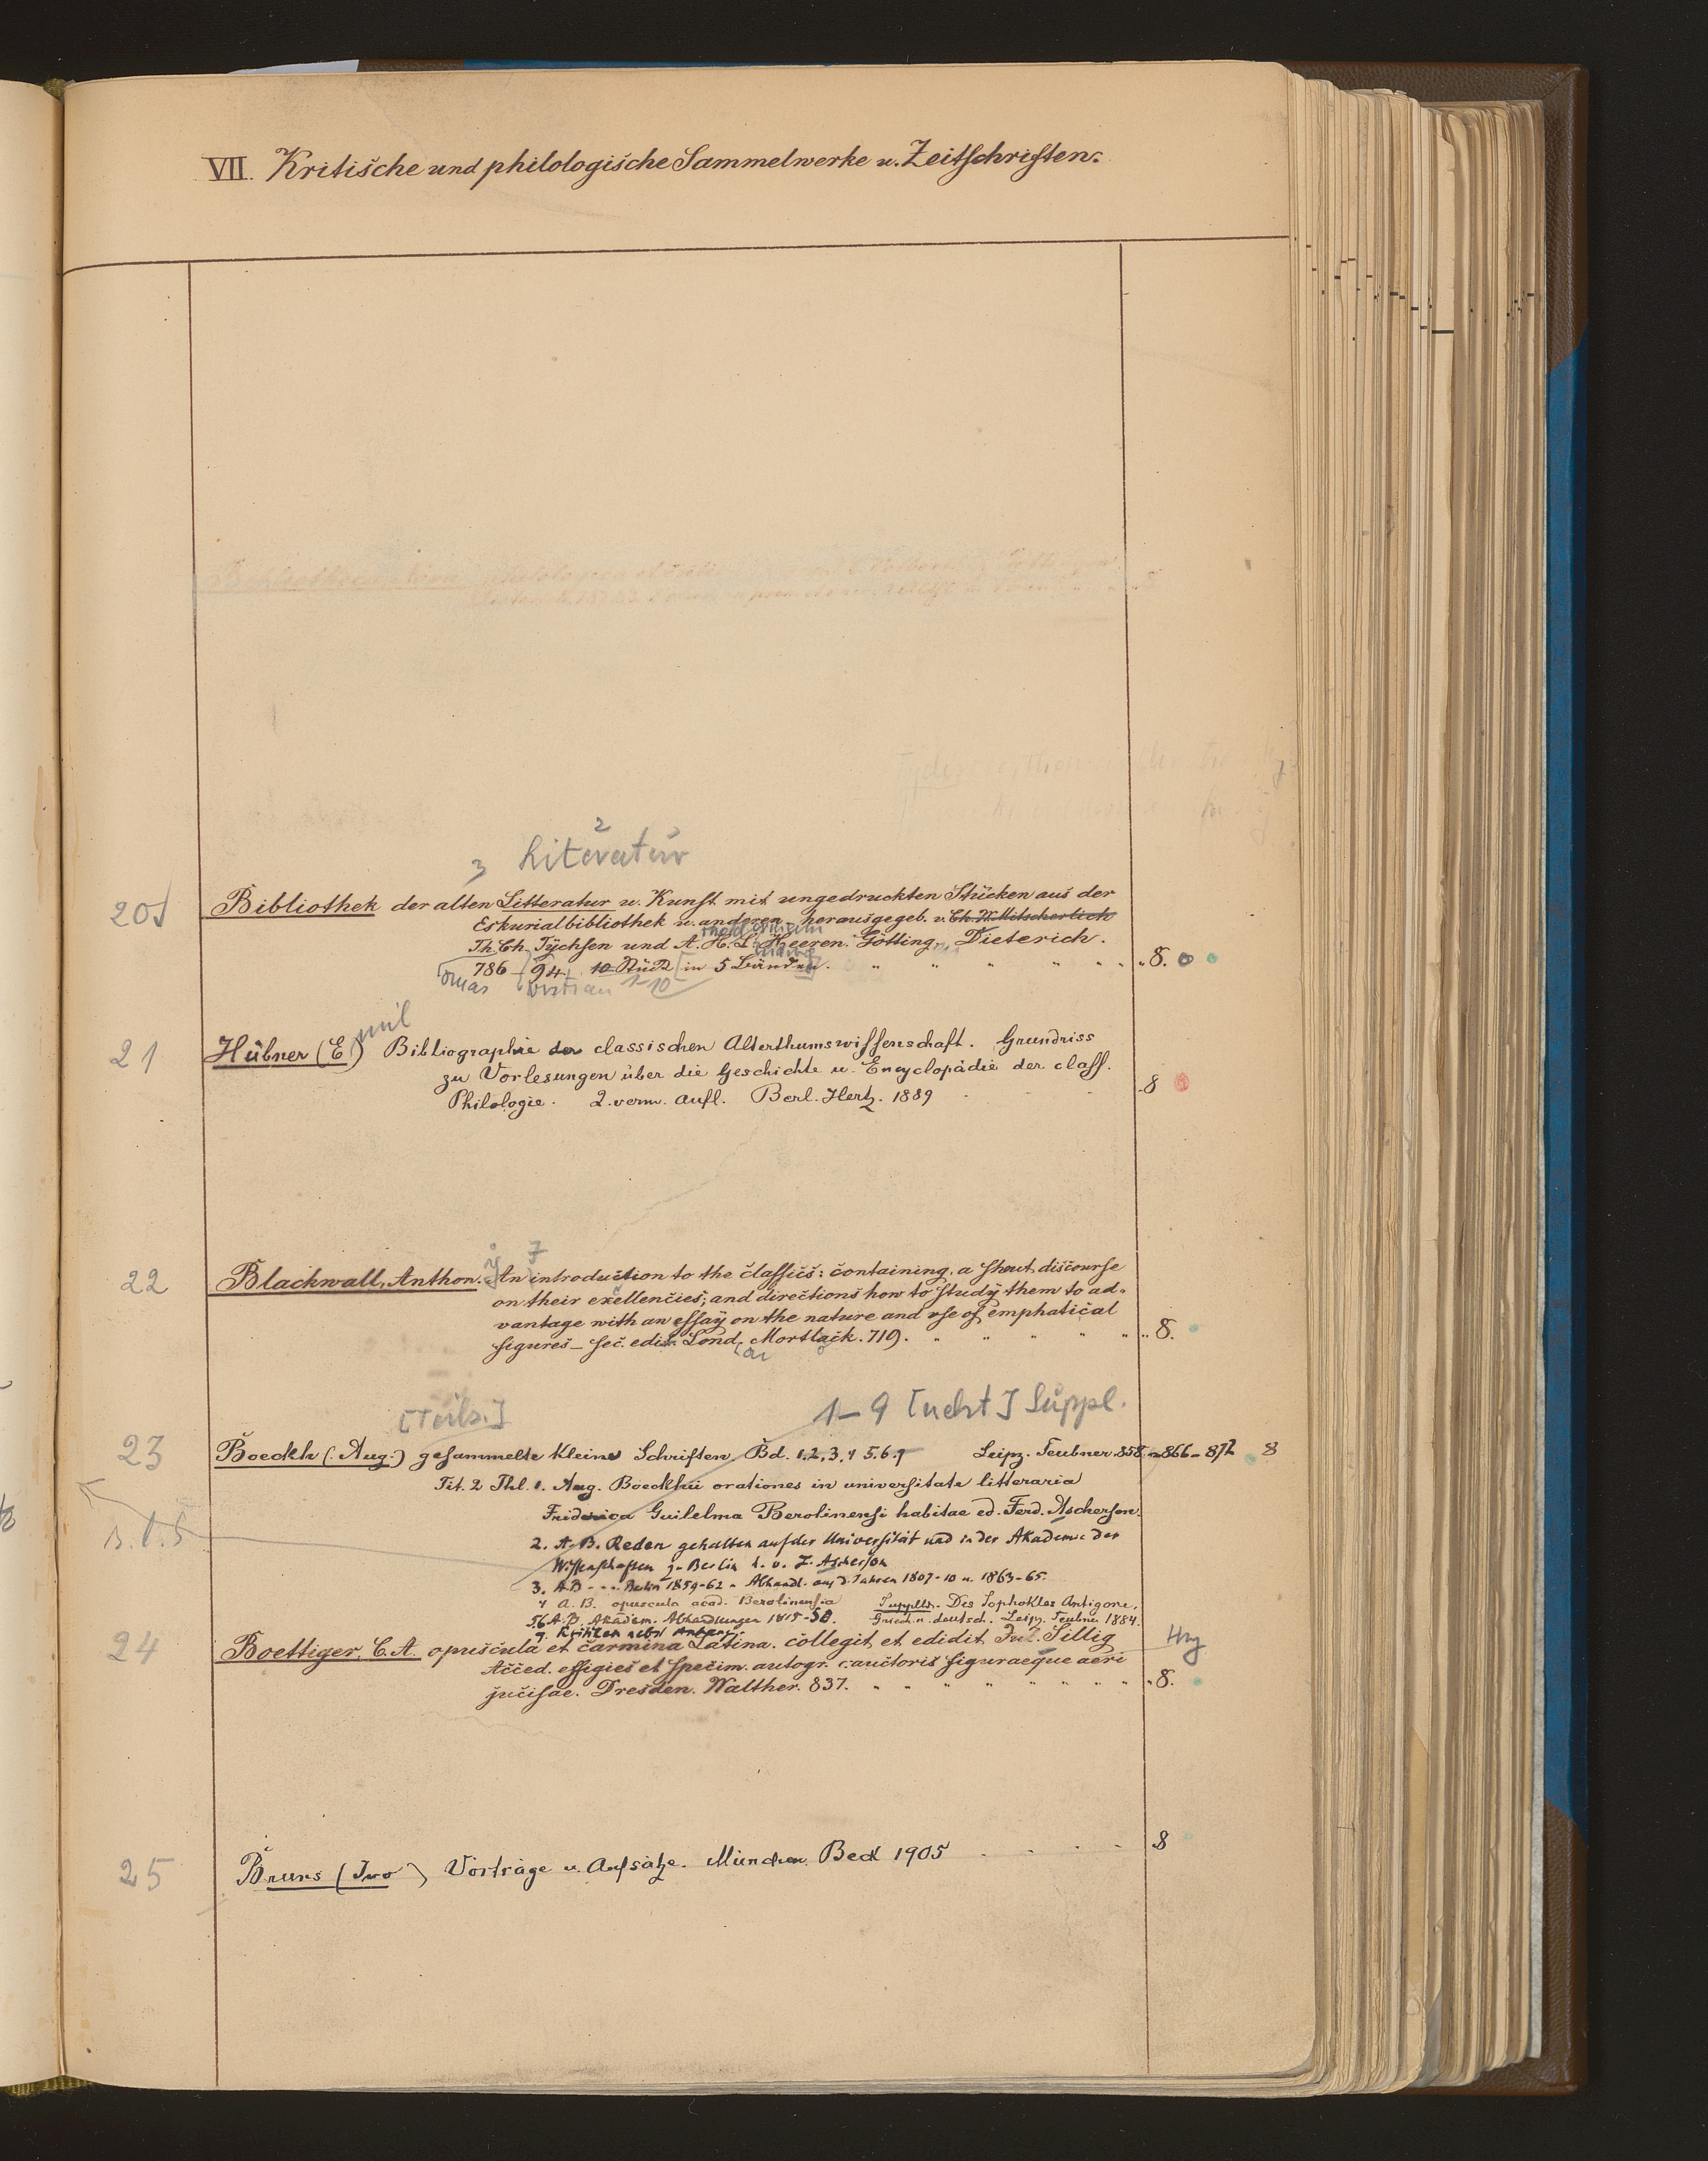 VII. Kritische und philologische Sammelwerke u. Zeitschriften.
2
3 Literatur
20 Bibliothek der alten Litteratur u. Kunst mit ungedruckten Stücken aus der
Eskurialbibliothek u. anderen herausgegeb. v. Ch. W. Mitscherlich
Th. Ch. Tychsen und A. H. L. Heeren. Götting. Dieterich.
786 - 94. 10 Stück in 5 Bänden. " " " " " " 8.
1-10
mil
21 Hübner (E.) Bibliographie der classischen Alterthumswissenschaft. Grundriss
zu Vorlesungen über die Geschichte u. Encyclopädie der class.
Philologie. 2. verm. Aufl. Berl. Hertz. 1889 8
22 Blackwall, Anthon. An introduction to the classics: containing, a short discourse
on their exellencies; and directions how to study them to ad-
vantage with an essay on the nature and use of emphatical
figures - sec. edit. Lond. Mortlack. 719. " " " " " 8.
[Teils.] 1-9 [nebst] Suppl.
23 Boeckh (Aug.) gesammelte kleine Schriften Bd. 1.2.3.4 5.6.7 Leipz. Teubner. 858 - 866 - 872 8
Tit. 2 Thl. 1. Aug. Boeckhii orationes in universitate litteraria
Friderica Guilelma Berolinensi habitae ed. Ferd. Ascherson.
2. A. B. Reden gehalten auf der Universität und in der Akademie der
Wissenschaften z. Berlin h. v. F. Ascherson
3. A B - - - Berlin 1859-62 u. Abhandl. aus d. Jahren 1807-10 u. 1863-65.
4 A. B. opuscula acad. Berolinensia Supplbd. Des Sophokles Antigone,
5.6 A. B. Akadem. Abhandlungen 1815-50. Griech. u. deutsch. Leipz. Teubner 1884.
7. Kritiken nebst Anhang.
24 Boettiger, C. A. opuscula et carmina Latina. collegit et edidit Jul. Sillig
Acced. effigies et specim. autogr. auctoris figuraeque aeri
jucisae. Dresden. Walther. 837. " " " " " " " 8.
25 Bruns (Ivo) Vorträge u. Aufsätze. München Beck 1905 8